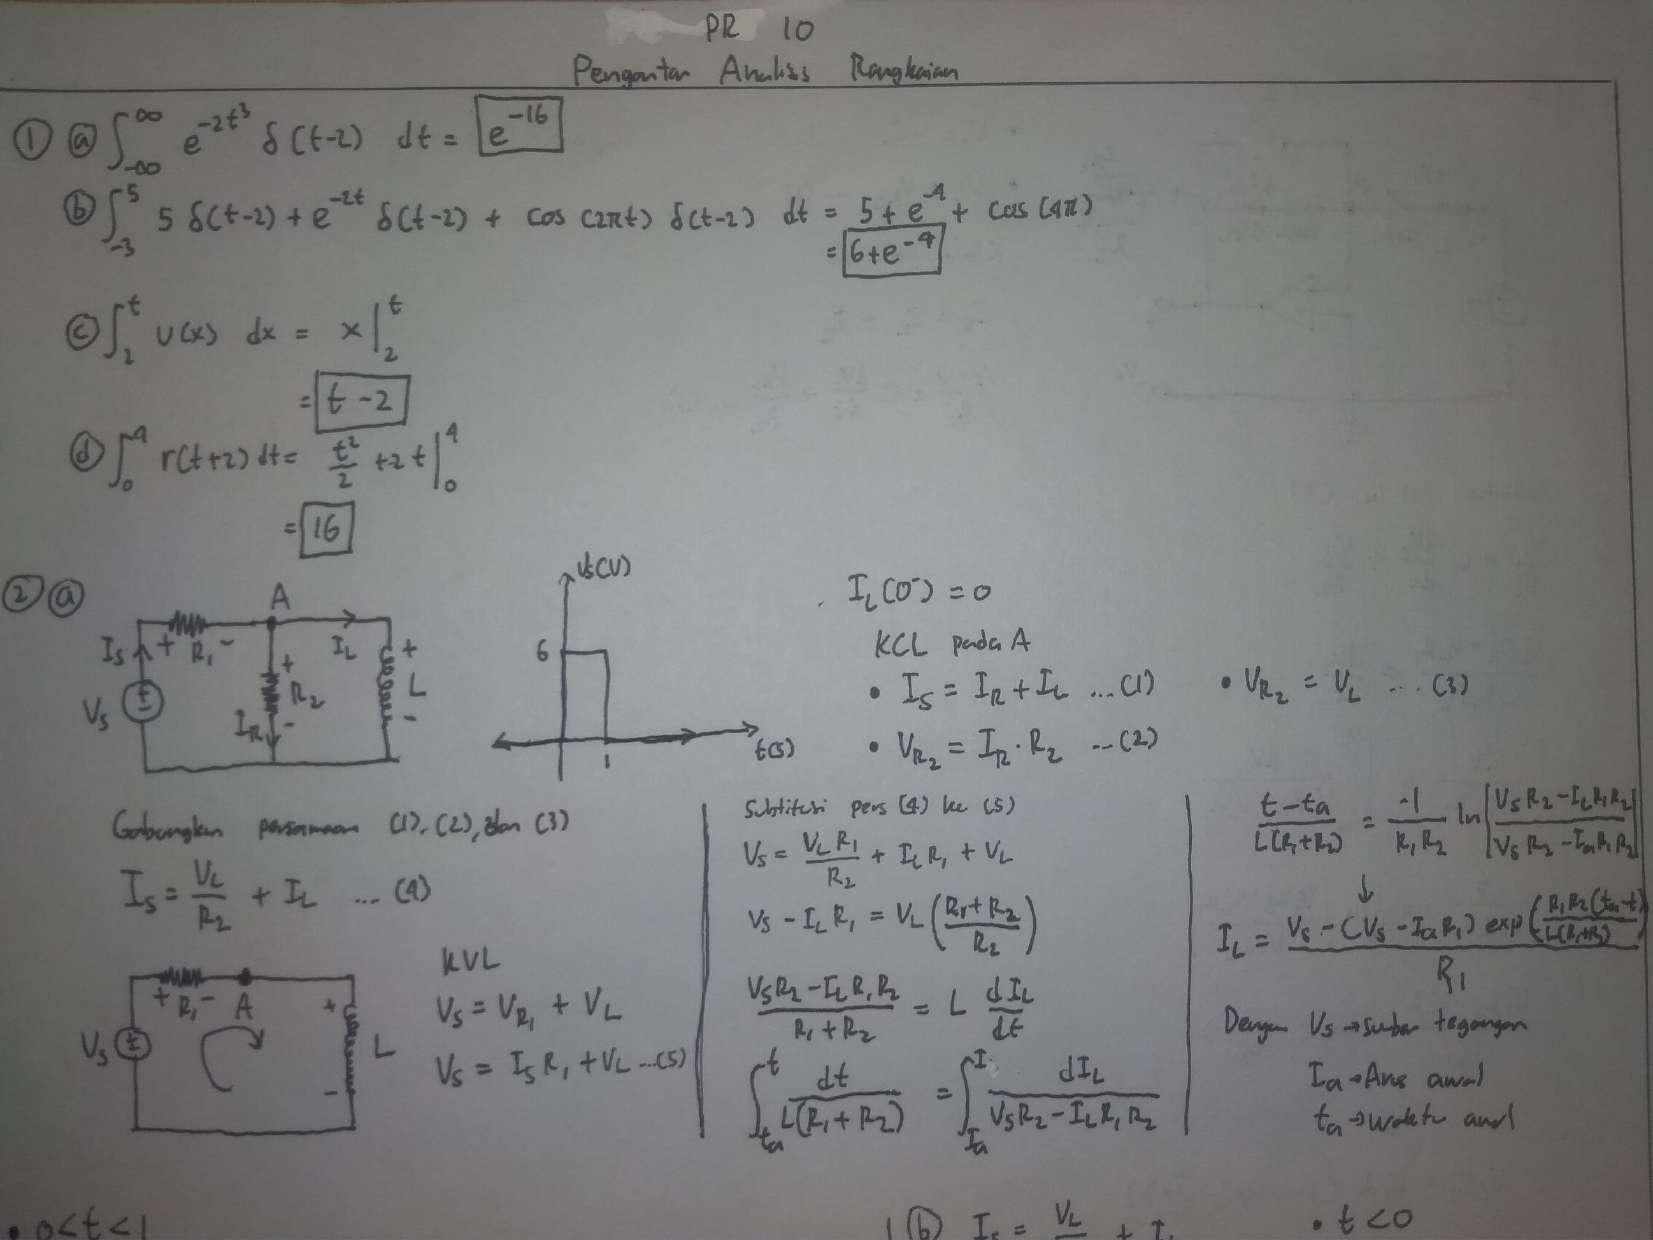 PR 10
Pengantar Analisis Rangkaian
① ⓐ ∫_{-∞}^{∞} e^{-2t³} δ(t-2) dt = e^{-16}
ⓑ ∫_{-3}^{5} 5 δ(t-2) + e^{-2t} δ(t-2) + cos(2πt) δ(t-2) dt = 5 + e^{-4} + cos(4π)
= 6+e^{-4}
ⓒ ∫_{2}^{t} U(x) dx = x |_{2}^{t}
= t-2
ⓓ ∫_{0}^{4} r(t+2) dt = t²/2 + 2t |_{0}^{4}
= 16
② ⓐ
A
Is + R₁ - IL +
+ R₂ L
Vs IR - -
Vs(V)
6
1
t(s)
IL(0⁻) = 0
KCL pada A
• Is = IR + IL ...(1)
• VR₂ = VL ...(3)
• VR₂ = IR · R₂ ...(2)
Gabungkan persamaan (1), (2), dan (3)
Is = VL/R₂ + IL ...(4)
+ R₁ - A +
Vs L
-
KVL
Vs = VR₁ + VL
Vs = Is R₁ + VL ...(5)
Subtitusi pers (4) ke (5)
Vs = VL R₁/R₂ + IL R₁ + VL
Vs - IL R₁ = VL ((R₁+R₂)/R₂)
(Vs R₂ - IL R₁ R₂)/(R₁+R₂) = L dIL/dt
∫_{ta}^{t} dt/(L(R₁+R₂)) = ∫_{Ia}^{I} dIL/(Vs R₂ - IL R₁ R₂)
(t-ta)/(L(R₁+R₂)) = -1/(R₁R₂) ln |(Vs R₂ - IL R₁ R₂)/(Vs R₂ - Ia R₁ R₂)|
↓
IL = (Vs - (Vs - Ia R₁) exp(R₁R₂(ta-t)/(L(R₁+R₂))))/R₁
Dengan Vs → sumber tegangan
Ia → Arus awal
ta → waktu awal
• 0<t<1
ⓑ Is = VL/ + I
• t<0